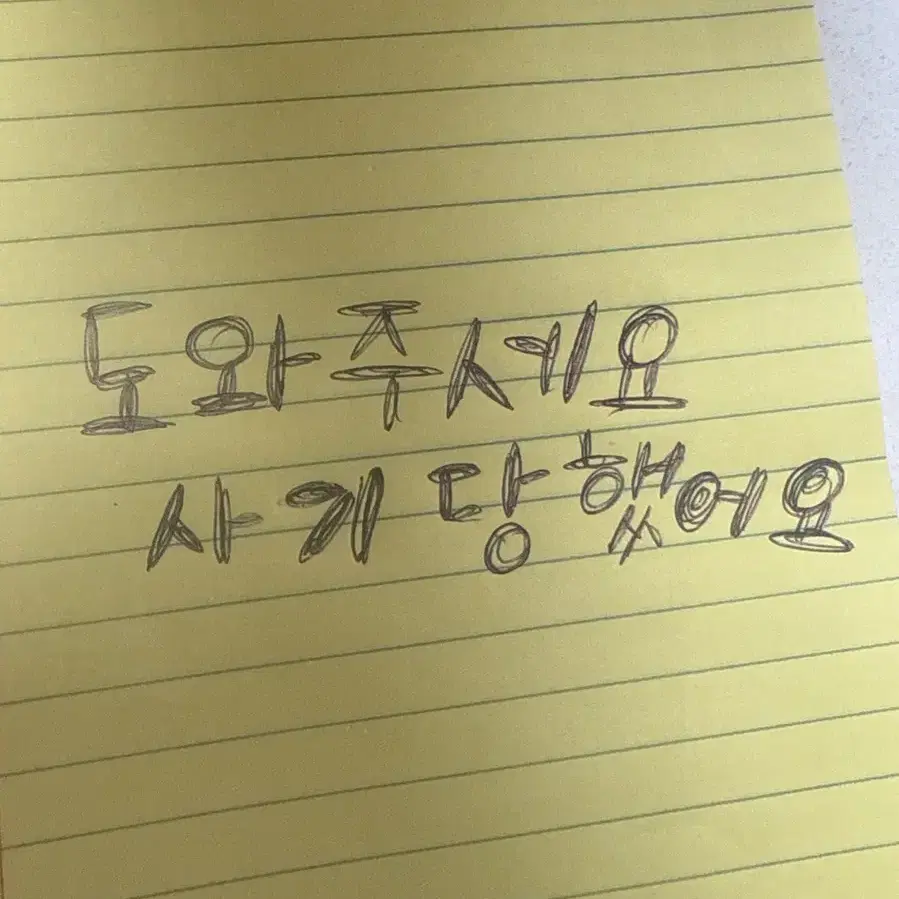 도와주세요
사게 당했어요